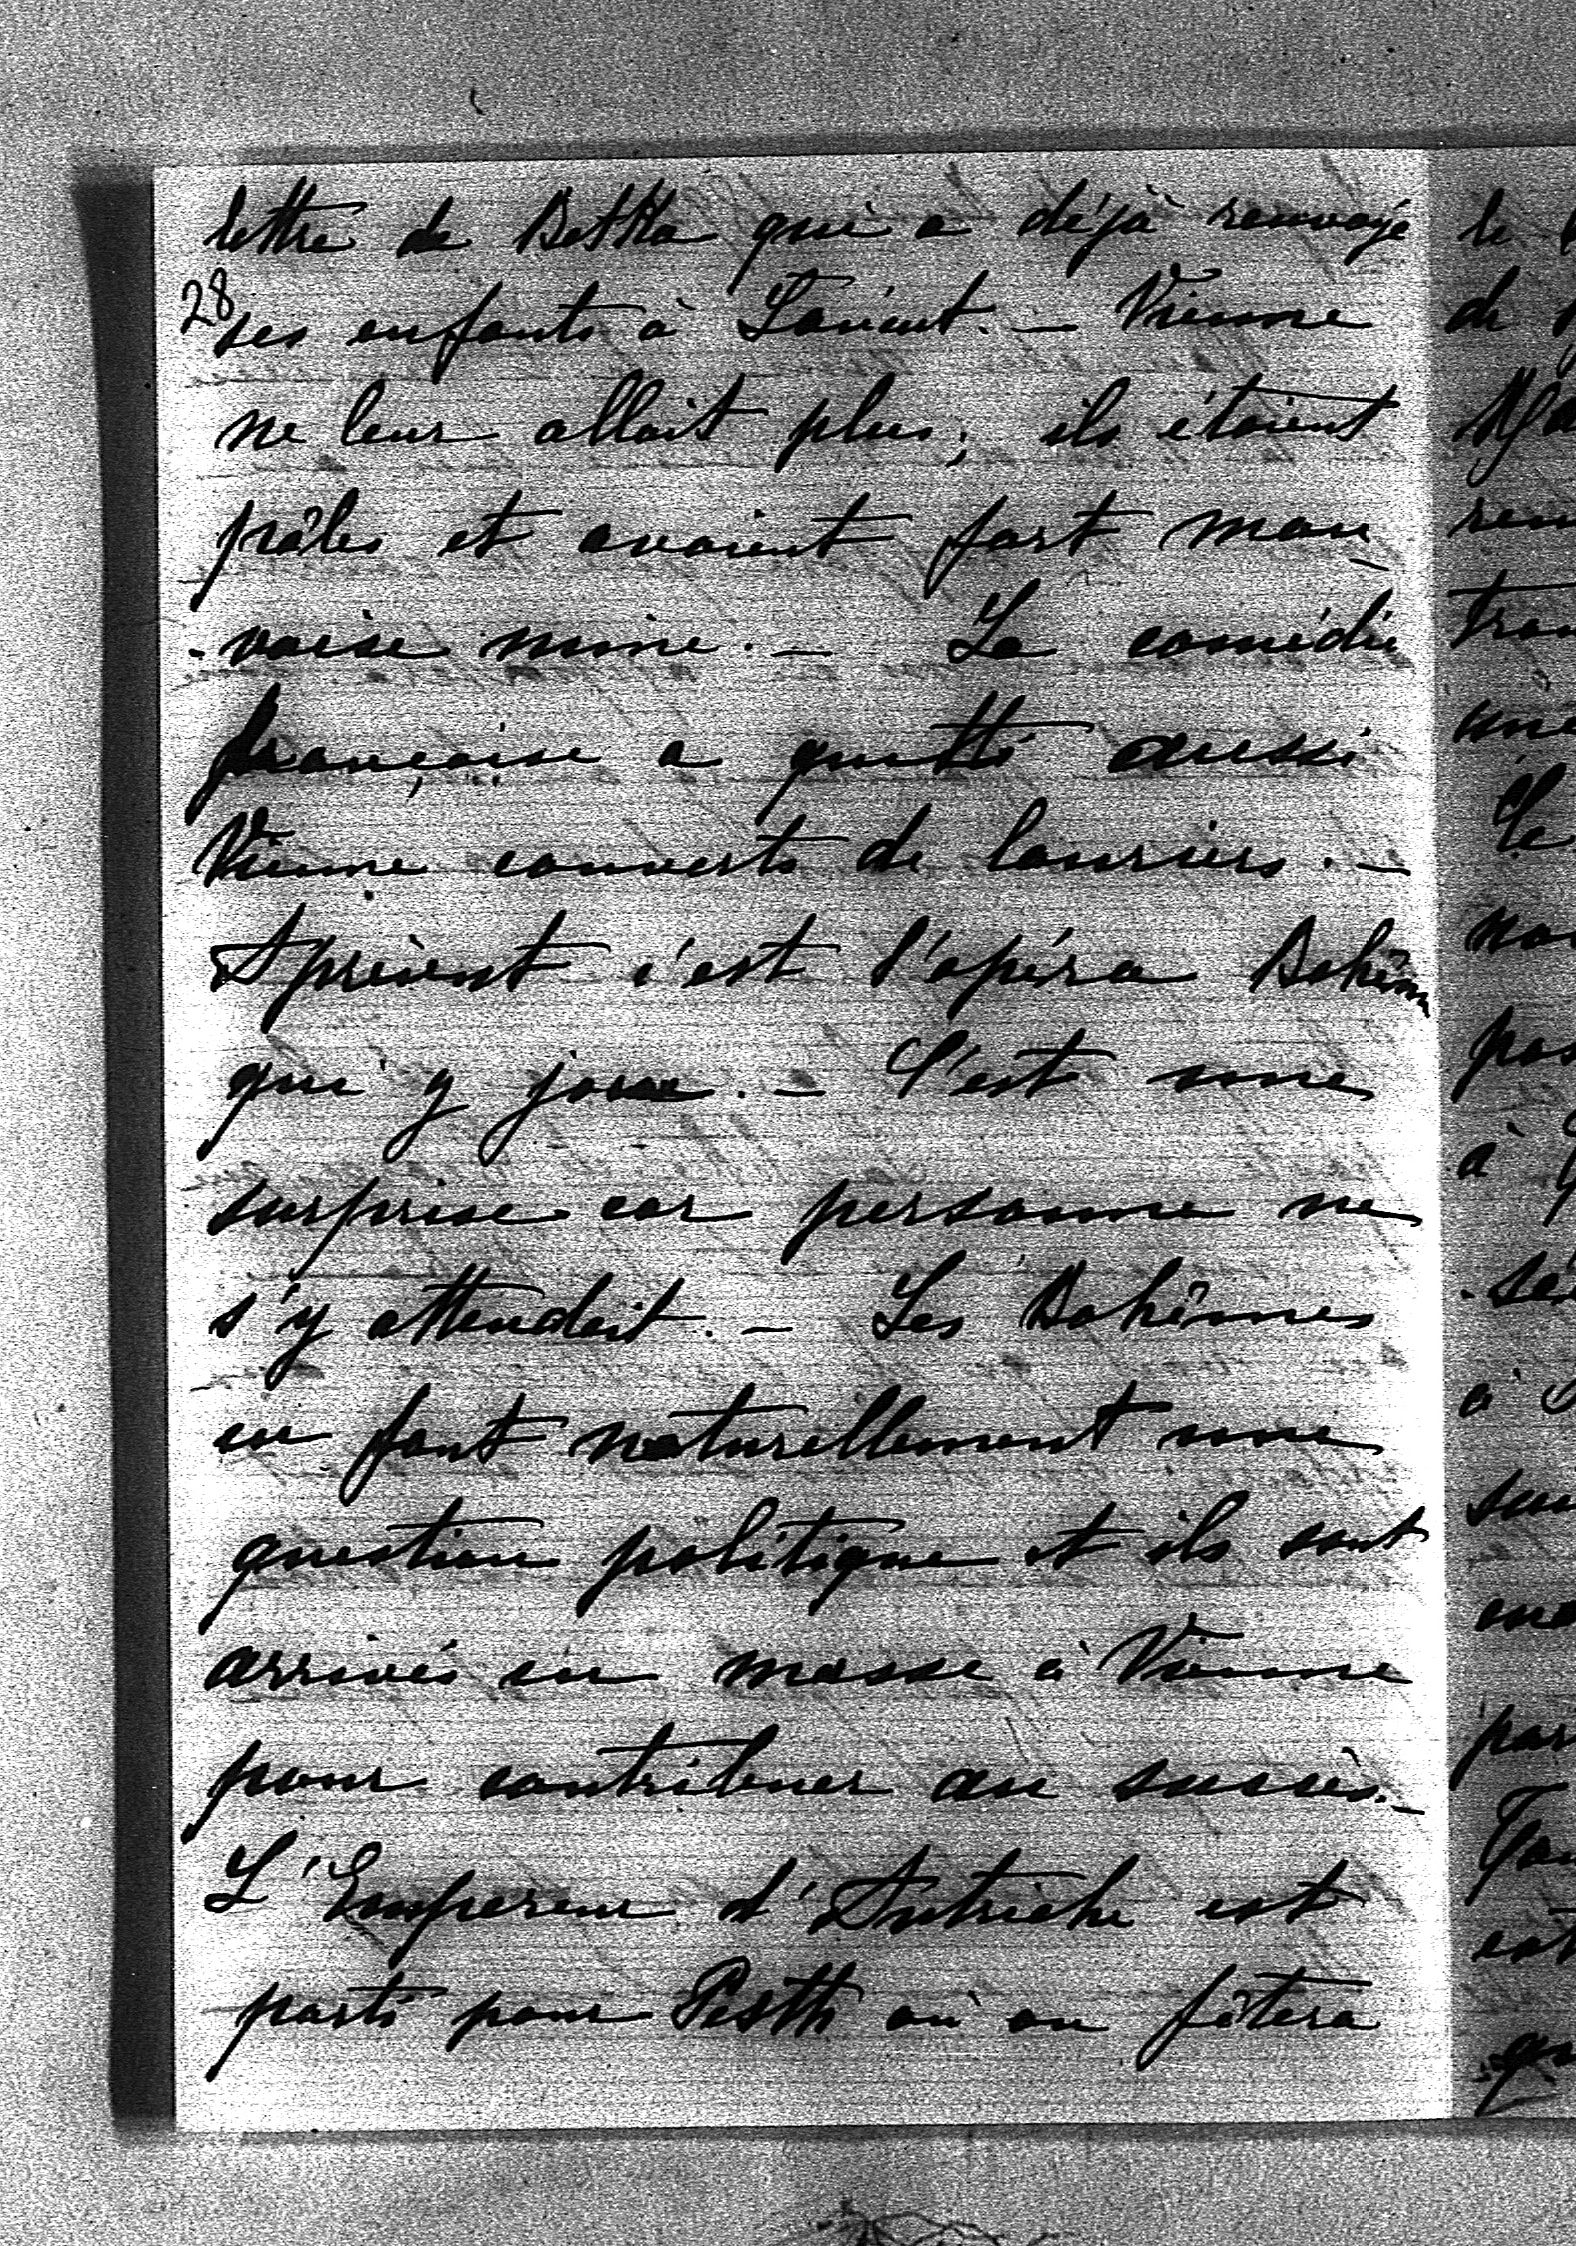 lettre de Betka qui a déjà renvoyé
28
ses enfants à Lancut. – Vienne
ne leur allait plus; ils étaient
pâles et avaient fort mau-
-vaise mine. – La comédie
française a quitté aussi
Vienne couverts de lauriers. –
A présent c'est l'opéra Bohême
qui y joue. – C'est une
surprise car personne ne
s'y attendait. – Les Bohêmes
en font naturellement une
question politique et ils sont
arrivés en masse à Vienne
pour contribuer au succès. –
L'Empereur d'Autriche est
parti pour Pesth où on fêtera